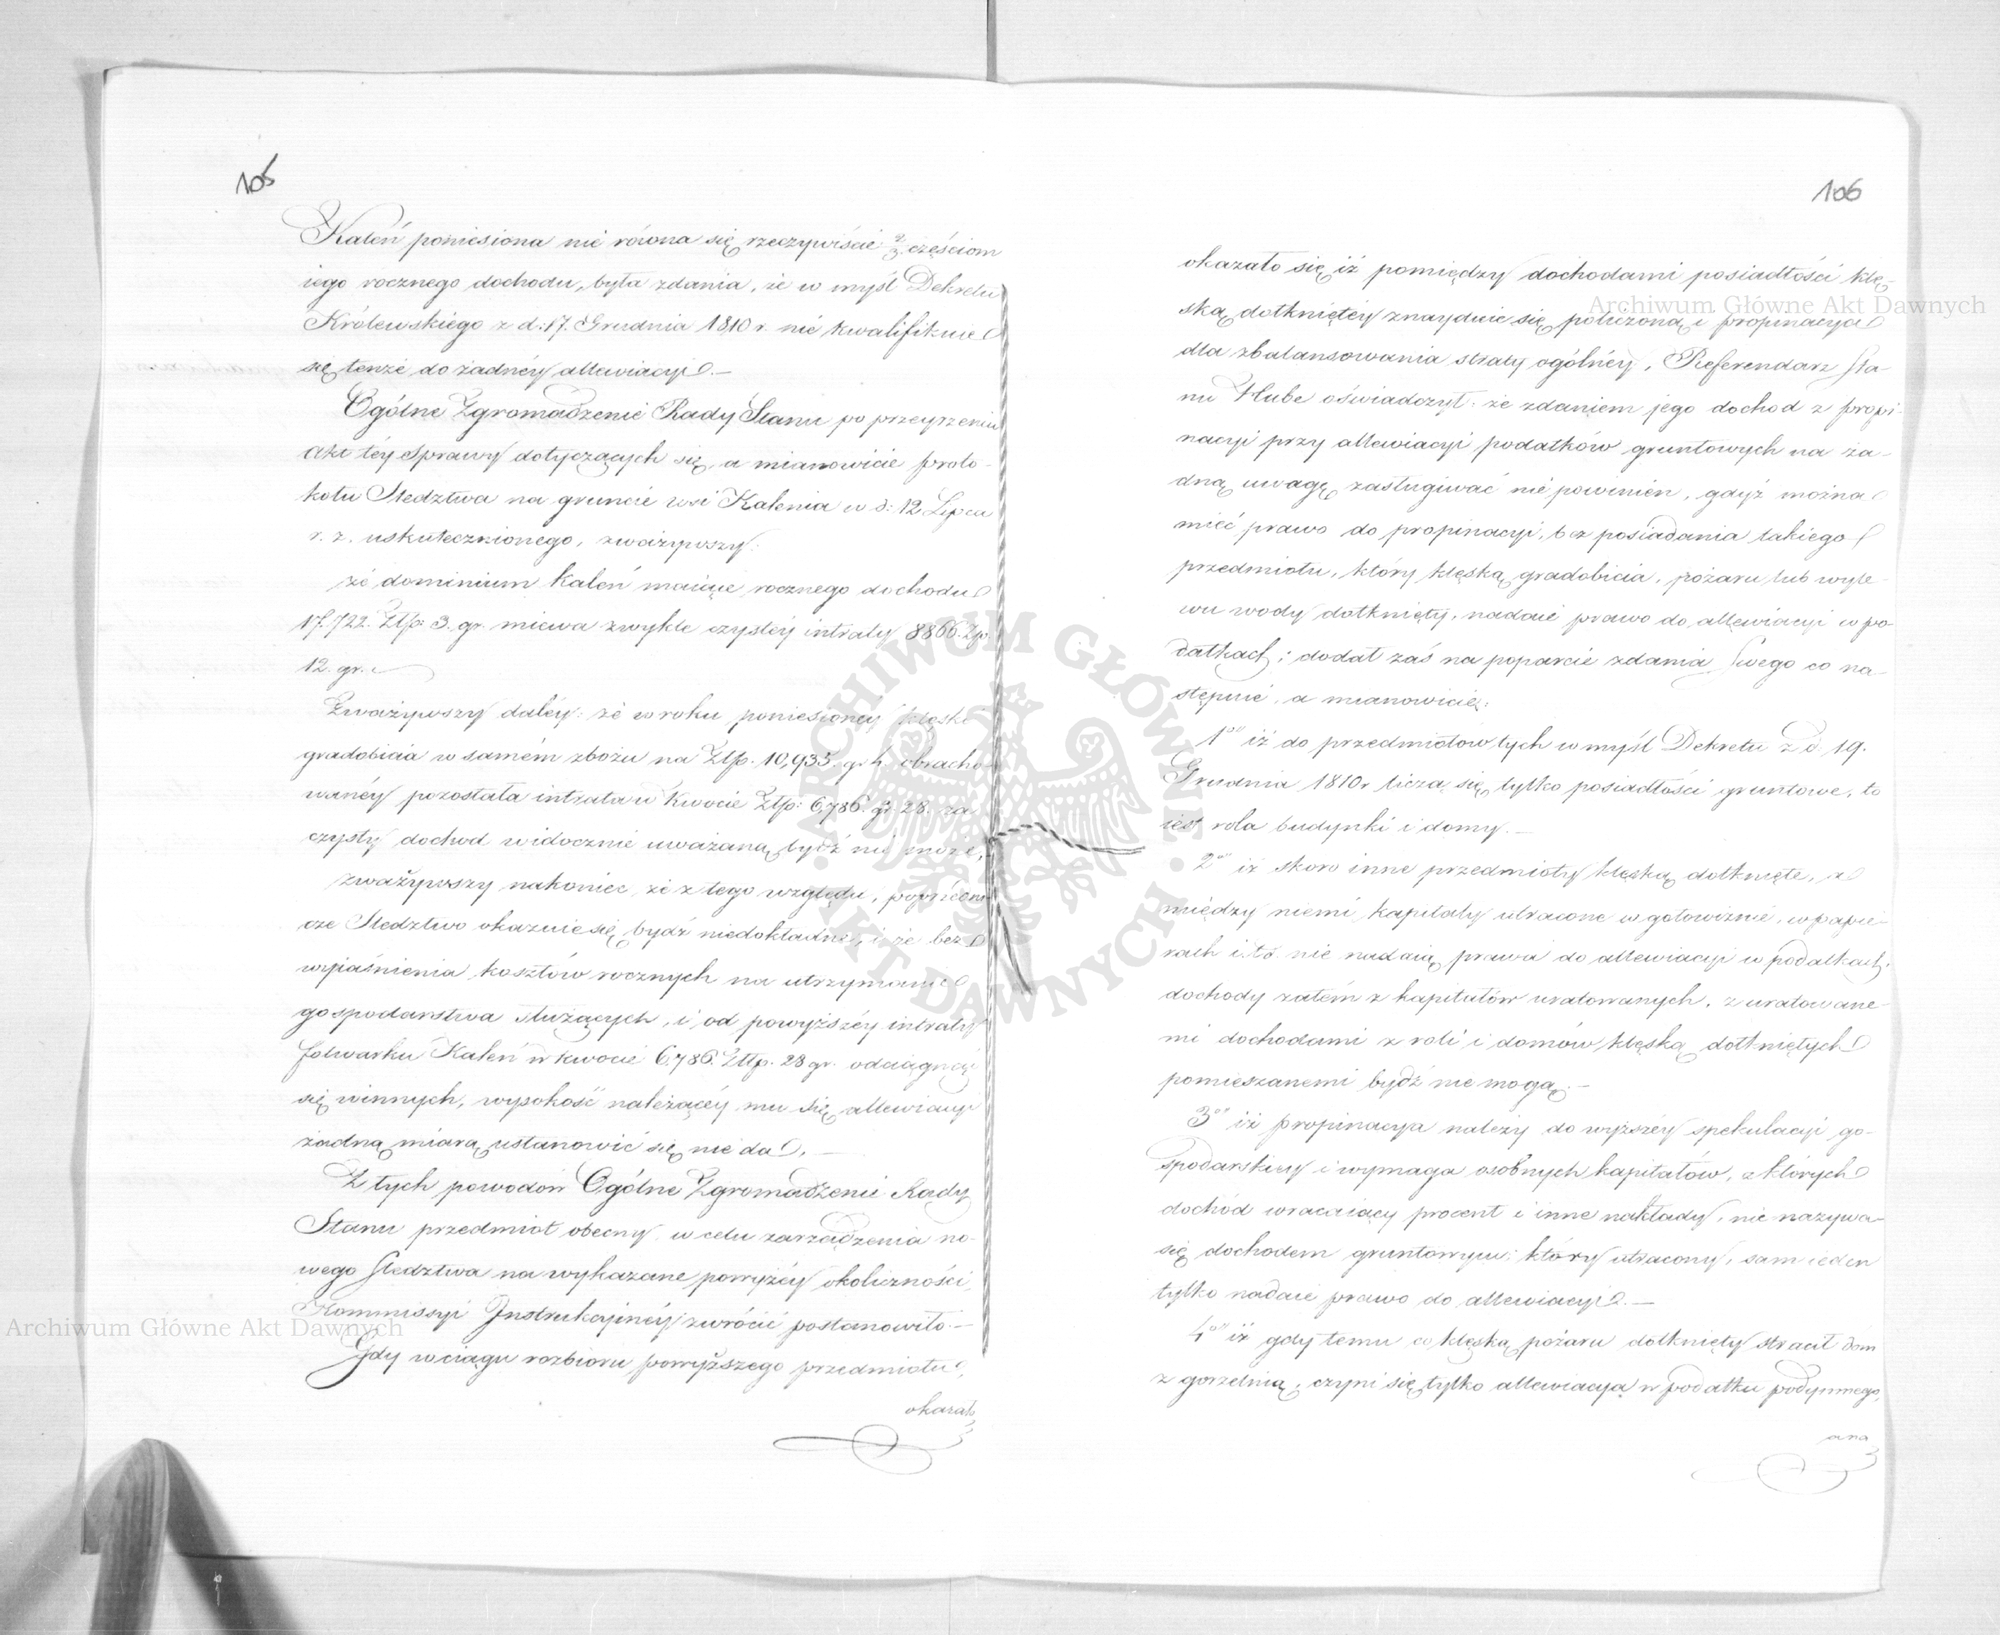 105
Kaleń poniesiona nie równa się rzeczywiście 2/3 częściom
iego rocznego dochodu, była zdania, że w myśl Dekretu
Królewskiego z d: 17. Grudnia 1810 r. nie kwalifikuie
się tenże do żadnéy allewiacyi.—
Ogólne Zgromadzenie Rady Stanu po przeyrzeniu
Akt téy Sprawy dotyczących się, a mianowicie proto-
kółu Sledztwa na gruncie wsi Kalenia w d: 12 Lipca
r. z. uskutecznionego, zważywszy:
że dominium Kaleń maiące rocznego dochodu
17.722. Złp: 3. gr. miewa zwykle czystéy intraty 8866. Zp.
12. gr.
Zważywszy daléy: że w roku poniesionéy klęski
gradobicia w samém zbożu na Złp. 10,935. gr. 4. obracho-
wanéy pozostała intrata w kwocie Złp: 6,786. gr 28. za
czysty dochod widocznie uważaną bydź nie może,
zważywszy nakoniec, że z tego względu, pomienio-
cze Sledztwo okazuie się bydź niedokładne, i że bez
wyiaśnienia kosztów rocznych na utrzymanie
gospodarstwa służących, i od powyższéy intraty
folwarku Kaleń w kwocie 6,786. Złp. 28 gr. odciągnąć
się winnych, wysokość należącéy mu się allewiacyi
żadną miarą ustanowić się nie da.—
Z tych powodów Ogólne Zgromadzenie Rady
Stanu przedmiot obecny, w celu zarządzenia no-
wego Sledztwa na wykazane powyżéy okoliczności,
Kommissyi Instrukcyinéy zwrócić postanowiło.—
Gdy w ciągu rozbioru powyższego przedmiotu,
okazało
106
okazało się iż pomiędzy dochodami posiadłości klę-
ską dotkniętéy znayduie się policzoną i propinacya
dla zbalansowania straty ogólnéy, Referendarz Sta-
nu Hube oświadczył: że zdaniem jego dochod z propi-
nacyi przy allewiacyi podatków gruntowych na ża-
dną uwagę zasługiwać nie powinien, gdyż można
mieć prawo do propinacyi, bez posiadania takiego
przedmiotu, który klęską gradobicia, pożaru lub wyle-
wu wody dotknięty, nadaie prawo do allewiacyi w po-
datkach; dodał zaś na poparcie zdania Swego co na-
stępuie, a mianowicie:
1o iż do przedmiotów tych w myśl Dekretu z d 19.
Grudnia 1810 r liczą się tylko posiadłości gruntowe, to
iest rola budynki i domy.—
2o iż skoro inne przedmioty klęską dotknięte, a
między niemi kapitały utracone w gotowiznie, w papie-
rach i.t.d. nie nadaią prawa do allewiacyi w podatkach,
dochody zatém z kapitałów uratowanych, z uratowane-
mi dochodami z roli i domów klęską dotkniętych
pomieszanemi bydź nie mogą.—
3o iż propinacya należy do wyższéy spekulacyi go-
spodarskiéy i wymaga osobnych kapitałów, z których
dochód wracaiący procent i inne nakłady, nie nazywa
się dochodem gruntowym; który utracony, sam ieden
tylko nadaie prawo do allewiacyi.—
4o iż gdy temu co klęską pożaru dotknięty stracił dom
z gorzelnią, czyni się tylko allewiacya w podatku podymnego,
a na
Archiwum Główne Akt Dawnych
Archiwum Główne Akt Dawnych
ARCHIWUM GŁÓWNE
AKT DAWNYCH